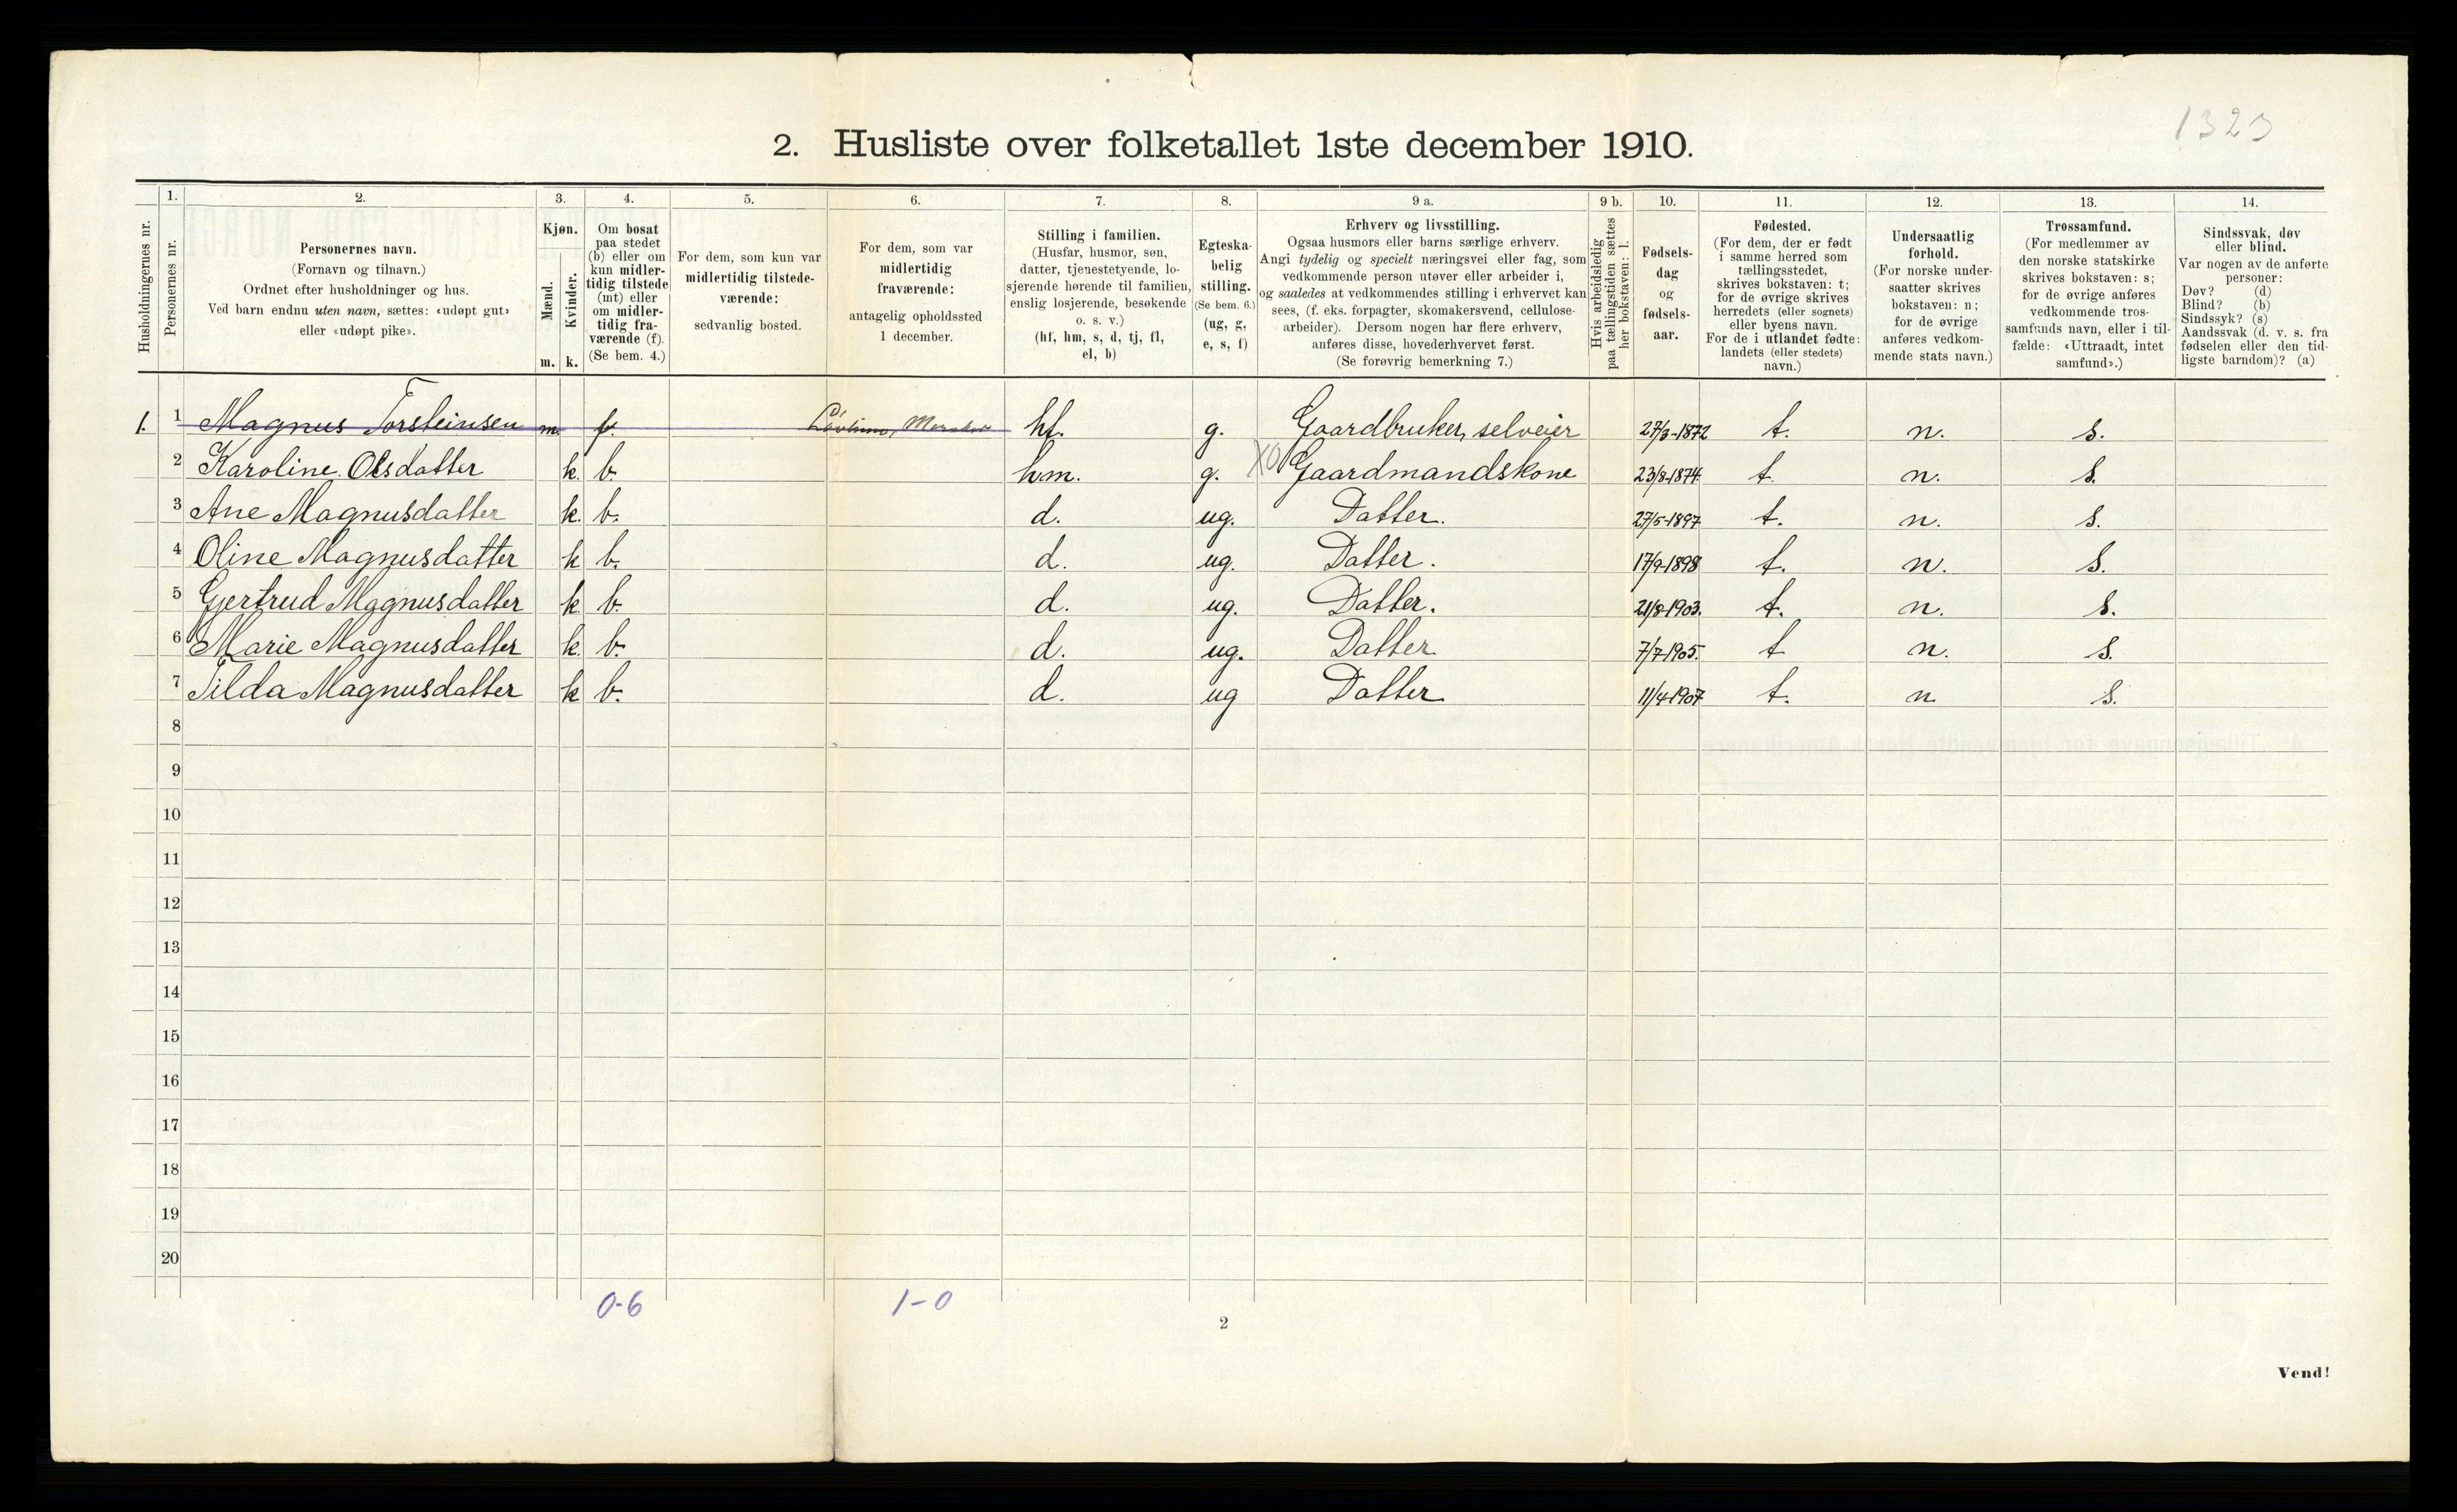 1323
2. Husliste over folketallet 1ste december 1910.
Husholdningernes nr.
1.
Personernes nr.
2.
Personernes navn.
(Fornavn og tilnavn.)
Ordnet efter husholdninger og hus.
Ved barn endnu uten navn, sættes: «udøpt gut»
eller «udøpt pike».
3.
Kjøn.
Mænd.
Kvinder.
m. k.
4.
Om bosat
paa stedet
(b) eller om
kun midler-
tidig tilstede
(mt) eller
om midler-
tidig fra-
værende (f).
(Se bem. 4.)
5.
For dem, som kun var
midlertidig tilstede-
værende:
sedvanlig bosted.
6.
For dem, som var
midlertidig
fraværende:
antagelig opholdssted
1 december.
7.
Stilling i familien.
(Husfar, husmor, søn,
datter, tjenestetyende, lo-
sjerende hørende til familien,
enslig losjerende, besøkende
o. s. v.)
(hf, hm, s, d, tj, fl,
el, b)
8.
Egteska-
belig
stilling.
(Se bem. 6.)
(ug, g,
e, s, f)
9 a.
Erhverv og livsstilling.
Ogsaa husmors eller barns særlige erhverv.
Angi tydelig og specielt næringsvei eller fag, som
vedkommende person utøver eller arbeider i,
og saaledes at vedkommendes stilling i erhvervet kan
sees, (f. eks. forpagter, skomakersvend, cellulose-
arbeider). Dersom nogen har flere erhverv,
anføres disse, hovederhvervet først.
(Se forøvrig bemerkning 7.)
9 b.
Hvis arbeidsledig
paa tællingstiden sættes
her bokstaven: l.
10.
Fødsels-
dag
og
fødsels-
aar.
11.
Fødested.
(For dem, der er født
i samme herred som
tællingsstedet,
skrives bokstaven: t;
for de øvrige skrives
herredets (eller sognets)
eller byens navn.
For de i utlandet fødte:
landets (eller stedets)
navn.)
12.
Undersaatlig
forhold.
(For norske under-
saatter skrives
bokstaven: n;
for de øvrige
anføres vedkom-
mende stats navn.)
13.
Trossamfund.
(For medlemmer av
den norske statskirke
skrives bokstaven: s;
for de øvrige anføres
vedkommende tros-
samfunds navn, eller i til-
fælde: «Uttraadt, intet
samfund».)
14.
Sindssvak, døv
eller blind.
Var nogen av de anførte
personer:
Døv? (d)
Blind? (b)
Sindssyk? (s)
Aandssvak (d. v. s. fra
fødselen eller den tid-
ligste barndom)? (a)
1. 1 Magnus Torsteinsen m. f. hf. g. Gaardbruker, selveier 27/3-1872 t. n. s.
2 Karoline Olsdatter k. b. hm. g. XO Gaardmandskone 23/8-1874 t. n. s.
3 Ane Magnusdatter k. b. d. ug. Datter. 27/5-1897 t. n. s.
4 Oline Magnusdatter k b. d. ug. Datter. 17/9-1898 t. n. s.
5 Gjertrud Magnusdatter k. b. d. ug. Datter. 21/8-1903. t. n. s.
6 Marie Magnusdatter k. b. d. ug. Datter 7/7-1905. t n. s.
7 Tilda Magnusdatter k b. d. ug Datter 11/4-1907 t. n. s.
8
9
10
11
12
13
14
15
16
17
18
19
20
0-6 1-0
2
Vend!